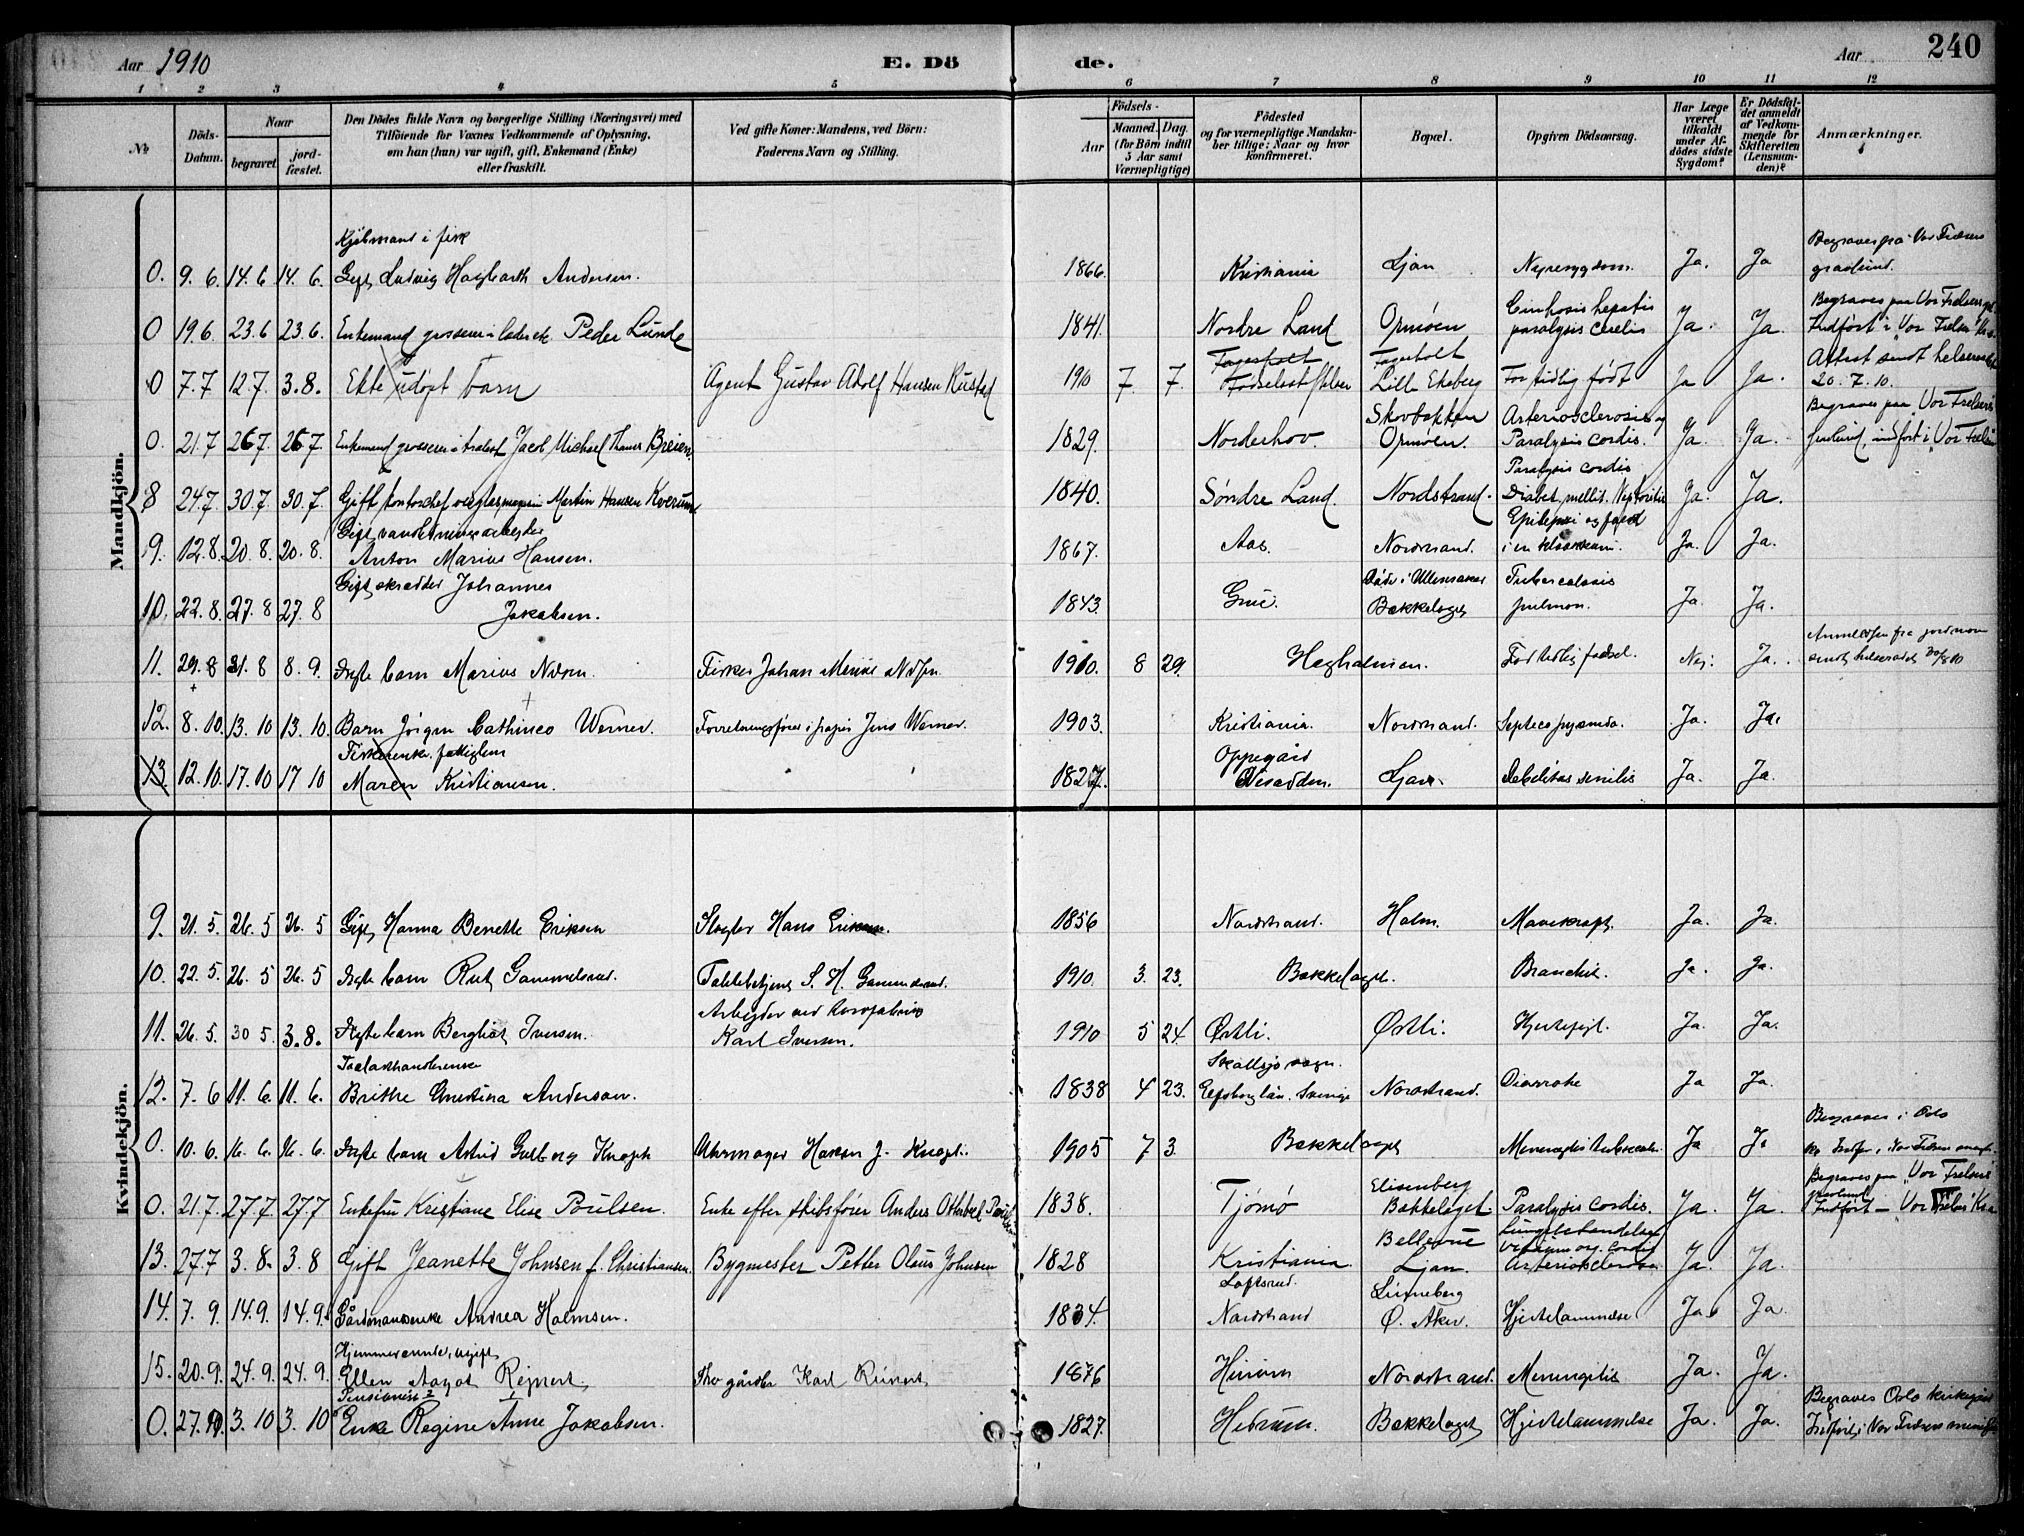 Aar 1910
E. Dö de.
Aar
240
1 2 3 4 5 6 7 8 9 10 11 12
№
Döds-Datum.
Naar
begravet
jord-fæstet.
Den Dödes fulde Navn og borgerlige Stilling (Næringsvei) med
Tilföiende for Voxnes Vedkommende af Oplysning,
om han (hun) var ugift, gift, Enkemand (Enke)
eller fraskilt.
Ved gifte Koner: Mandens, ved Börn:
Faderens Navn og Stilling.
Födsels-
Aar
Maaned. Dag.
(for Börn indtil
5 Aar samt
Værnepligtige)
Födested
og for værnepligtige Mandska-
ber tillige: Naar og hvor
konfirmeret.
Bopæl.
Opgiven Dödsaarsag.
Har Læge
været
tilkaldt
under Af-
dödes sidste
Sygdom?
Er Dödsfal-
det anmeldt
af Vedkom-
mende for
Skifteretten
(Lensman-
den)?
Anmærkninger.
Mandkjön.
Kjøbmand i fisk
0. 9. 6. 14. 6 14. 6. Gift, Ludvig Hagbarth Andersen. 1866. Kristiania Ljan Nyresygdom. Ja. Ja Begraves på Vor Frelsers
gravlund.
0 19.6. 23.6 23.6. Enkemand grosserer i læder etc Peder Lunde 1841. Nordre Land Ormøen Cirrhosis hepatis
paralysis cordis Ja. Ja. Begraves paa Vor Frelsers
Indført i Vor Frelsers
0 7.7 12.7. 3.8. Ekte udøpt barn Agent Gustav Adolf Hansen Rustad 1910 7 7. Fagerholt
Lille Ekeberg For tidlig født Ja Ja. Attest sendt
20. 7. 10.
0. 21.7 26.7 26.7 Enkemand grosserer i trælast Jacob Michael Breien. 1829. Norderhov. Skovbakken
Ormøen. Arteriosclerosis og
Paralysis cordis. Ja. Ja. Begraves paa Vor Frelsers
indført i Vor Frelsers
8 24.7. 30.7. 30.7. Gift Martin Hansen Kverum 1840. Søndre Land. Nordstrand. Paralysis cordis
Diabet. mellit. Ja. Ja.
9. 12.8. 20.8. 20.8. Gift
Anton Marius Hansen. 1867. Aas. Nordstrand. Epilepsi og
i en Ja. Ja.
10. 22.8. 27.8 27.8 Gift, skrædder Johannes
Jakobsen. 1843. Grue. Døde i Ullensaker
Bækkelaget Tuberculosis
pulmon. Ja. Ja.
11. 29.8 31.8 8.9. Ægte barn Marius Fisker Johan 1910. 8 29. Hegholmen. For tidlig fødsel. Nei. Ja. Anmeldelse fra jordmor
12. 8.10. 13.10 13.10. Barn Jørgen Cathinco Werner. Forretningsfører i papir Jens Werner. 1903. Kristiania. Nordstrand. Ja. Ja.
13. 12.10. 17.10 17 10 Fiskerenke, fattiglem
Maren Kristiansen. 1827. Oppegård
Ljan. Debilitas senilis Ja. Ja.
Kvindekjön.
9. 21.5. 26.5 26.5 Gift, Hanna Benette Eriksen Slagter Hans Eriksen. 1856 Nordstrand. Holm. Mavekræft. Ja. Ja.
10. 22.5. 26.5 26.5 Ægte barn Rut Gammelsrud. Toldbetjent S. H. Gammelsrud. 1910. 3. 23. Bækkelaget. Bronchit. Ja. Ja.
11. 26.5. 30 5. 3.8. Ægte barn Bergliot Iversen. Arbeider ved
Karl Iversen. 1910 5 24 Østli. Østli. Hjertefeil. Ja. Ja.
12. 7.6 11.6. 11.6. Trælasthandlerenke
Britte Christina Anderson. 1838 4 23. Skallsjö sogn.
Elfsborg län. Sverige Nordstrand. Diarrohe Ja Ja.
0. 10.6. 16.6. 16.6. Ægte barn Astrid Solborg Knoph Uhrmager Haken J. Knoph. 1905 7 3. Bækkelaget Meningitis tubercul. Ja Ja Begraves i Oslo
0. 21.7. 27.7 27.7 Enkefru Kristiane Elise Poulsen. Enke efter skibsfører Anders 1838. Tjømø Elisenberg
Bækkelaget. Paralysis cordis. Ja. Ja. Begraves paa Vor Frelsers
gravlund
Indført – Vor Frelsers Kra
13. 27.7 3.8. 3.8 Gift Jeanette Johnsen f. Christiansen. Bygmester Petter Olaus Johnsen 1828 Kristiania. Bellevue
Ljan.
Arteriosclerosis Ja. Ja.
14. 7.9. 14.9. 14.9. Gårdmandsenke Andrea Holmsen. 1834. Loftsrud.
Nordstrand Linneberg
Ø. Aker. Hjertelammelse Ja. Ja.
15. 20.9. 24.9. 24.9. Hjemmeværende, ugift,
Ellen Aagot Reinert, Karl Reinert 1876 Nordstrand. Meningitis Ja. Ja.
0. 27.9. 3.10 3.10 Pensionist
Enke Regine Anne Jakobsen. 1827. Hedrum. Bækkelaget Hjertelammelse Ja. Ja. Begraves Oslo kirkegård
Indført i Vor Frelsers